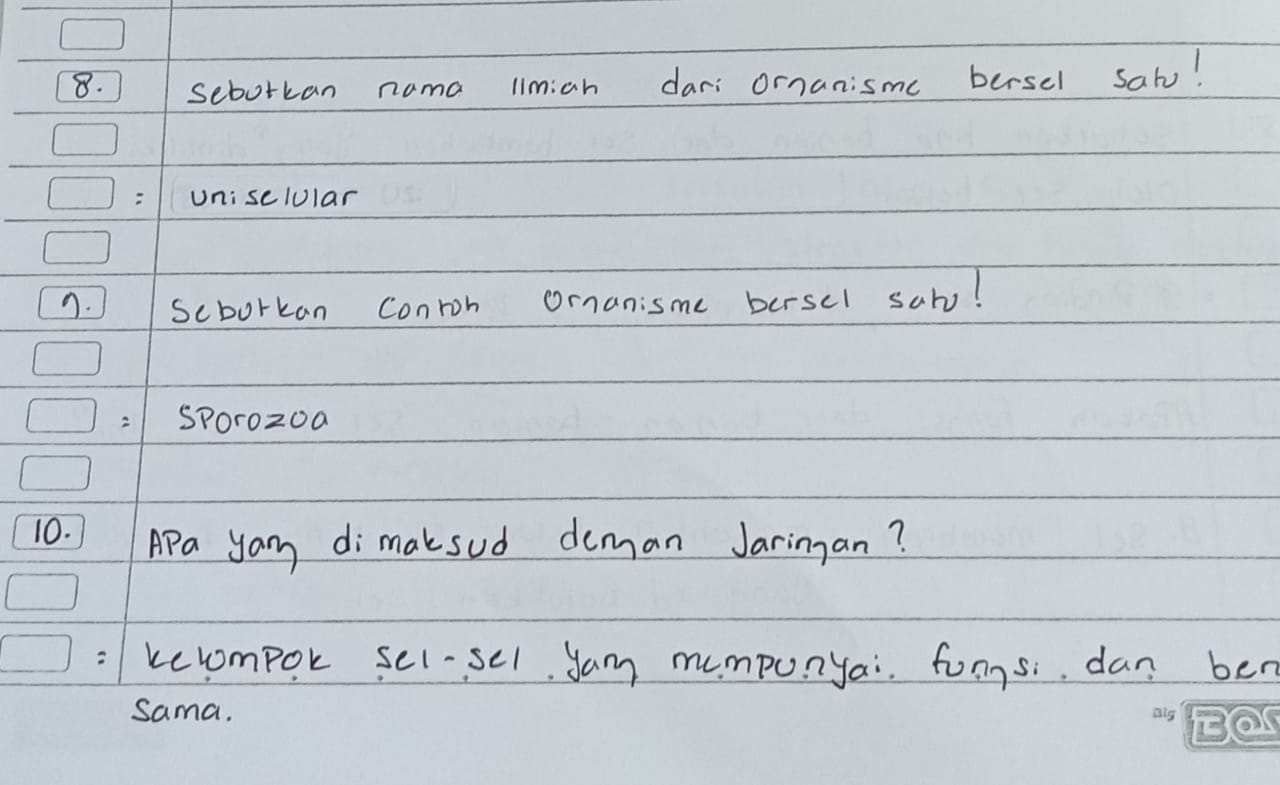 8. Sebutkan nama Ilmiah dari organisme bersel satu!
: uniselular
9. Sebutkan contoh organisme bersel satu!
: Sporozoa
10. Apa yang dimaksud dengan Jaringan?
: kelompok sel-sel yang mempunyai fungsi dan ben
sama.
Big BOS